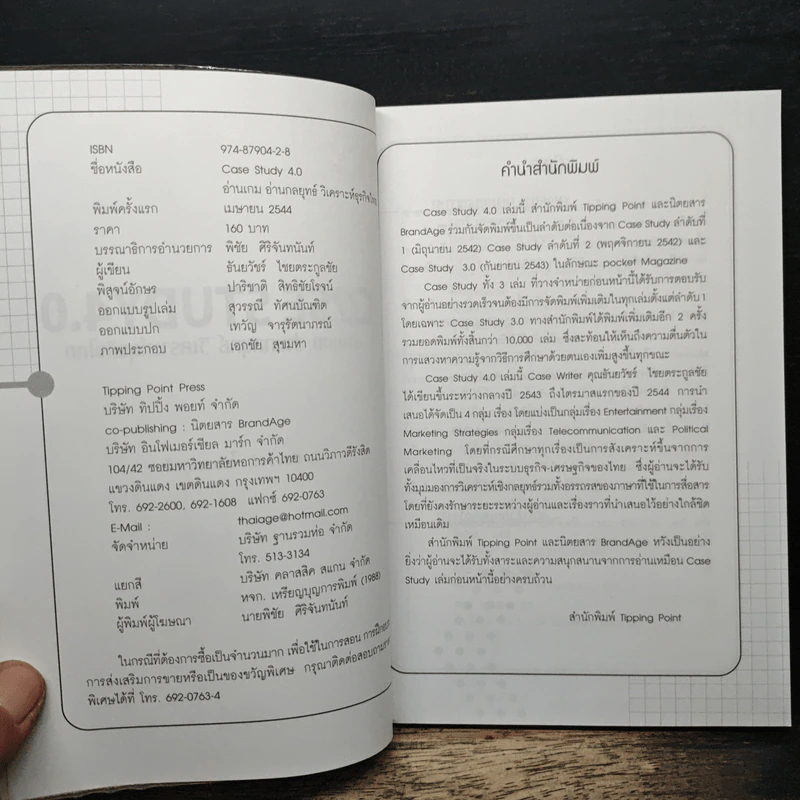 ISBN 974-87904-2-8
ชื่อหนังสือ Case Study 4.0
อ่านเกม อ่านกลยุทธ์ วิเคราะห์ธุรกิจไทย
พิมพ์ครั้งแรก เมษายน 2544
ราคา 160 บาท
บรรณาธิการอำนวยการ พิชัย ศิริจันทนันท์
ผู้เขียน ธันยวัชร์ ไชยตระกูลชัย
พิสูจน์อักษร ปาริชาติ สิทธิชัยโรจน์
ออกแบบรูปเล่ม สุวรรณี ทัศนบัณฑิต
ออกแบบปก เทวัญ จารุรัตนาภรณ์
ภาพประกอบ เอกชัย สุขมหา
Tipping Point Press
บริษัท ทิปปิ้ง พอยท์ จำกัด
co-publishing : นิตยสาร BrandAge
บริษัท อินโฟเมอร์เชียล มาร์ก จำกัด
104/42 ซอยมหาวิทยาลัยหอการค้าไทย ถนนวิภาวดีรังสิต
แขวงดินแดง เขตดินแดง กรุงเทพฯ 10400
โทร. 692-2600, 692-1608 แฟกซ์ 692-0763
E-Mail : thaiage@hotmail.com
จัดจำหน่าย บริษัท ฐานรวมห่อ จำกัด
โทร. 513-3134
แยกสี บริษัท คลาสสิค สแกน จำกัด
พิมพ์ หจก. เหรียญบุญการพิมพ์ (1988)
ผู้พิมพ์ผู้โฆษณา นายพิชัย ศิริจันทนันท์
ในกรณีที่ต้องการซื้อเป็นจำนวนมาก เพื่อใช้ในการสอน การฝึกอบรม
การส่งเสริมการขายหรือเป็นของขวัญพิเศษ กรุณาติดต่อสอบถามราคา
พิเศษได้ที่ โทร. 692-0763-4
คำนำสำนักพิมพ์
Case Study 4.0 เล่มนี้ สำนักพิมพ์ Tipping Point และนิตยสาร
BrandAge ร่วมกันจัดพิมพ์ขึ้นเป็นลำดับต่อเนื่องจาก Case Study ลำดับที่
1 (มิถุนายน 2542) Case Study ลำดับที่ 2 (พฤศจิกายน 2542) และ
Case Study 3.0 (กันยายน 2543) ในลักษณะ pocket Magazine
Case Study ทั้ง 3 เล่ม ที่วางจำหน่ายก่อนหน้านี้ได้รับการตอบรับ
จากผู้อ่านอย่างรวดเร็วจนต้องมีการจัดพิมพ์เพิ่มเติมในทุกเล่มตั้งแต่ลำดับ 1
โดยเฉพาะ Case Study 3.0 ทางสำนักพิมพ์ได้พิมพ์เพิ่มเติมอีก 2 ครั้ง
รวมยอดพิมพ์ทั้งสิ้นกว่า 10,000 เล่ม ซึ่งสะท้อนให้เห็นถึงความตื่นตัวใน
การแสวงหาความรู้จากวิธีการศึกษาด้วยตนเองเพิ่มสูงขึ้นทุกขณะ
Case Study 4.0 เล่มนี้ Case Writer คุณธันยวัชร์ ไชยตระกูลชัย
ได้เขียนขึ้นระหว่างกลางปี 2543 ถึงไตรมาสแรกของปี 2544 การนำ
เสนอได้จัดเป็น 4 กลุ่ม เรื่อง โดยแบ่งเป็นกลุ่มเรื่อง Entertainment กลุ่มเรื่อง
Marketing Strategies กลุ่มเรื่อง Telecommunication และ Political
Marketing โดยที่กรณีศึกษาทุกเรื่องเป็นการสังเคราะห์ขึ้นจากการ
เคลื่อนไหวที่เป็นจริงในระบบธุรกิจ-เศรษฐกิจของไทย ซึ่งผู้อ่านจะได้รับ
ทั้งมุมมองการวิเคราะห์เชิงกลยุทธ์รวมทั้งอรรถรสของภาษาที่ใช้ในการสื่อสาร
โดยที่ยังคงรักษาระยะระหว่างผู้อ่านและเรื่องราวที่นำเสนอไว้อย่างใกล้ชิด
เหมือนเดิม
สำนักพิมพ์ Tipping Point และนิตยสาร BrandAge หวังเป็นอย่าง
ยิ่งว่าผู้อ่านจะได้รับทั้งสาระและความสนุกสนานจากการอ่านเหมือน Case
Study เล่มก่อนหน้านี้อย่างครบถ้วน
สำนักพิมพ์ Tipping Point